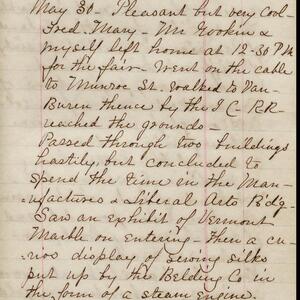 May 30 - Pleasant but very cool -
Fred, Mary - Mr Gookin &
myself left home at 12-30 P.M.
for the fair. Went on the cable
to Munroe St. walked to Van-
Buren thence by the I C RR
reached the grounds -
Passed through two buildings
hastily, but concluded to
spend the time in the Man-
ufactures & Liberal Arts Bdg.
Saw an exhibit of Vermont
Marble on entering - then a cu-
rios display of sewing silks
put up by the Belding Co. in
the form of a steam engine.